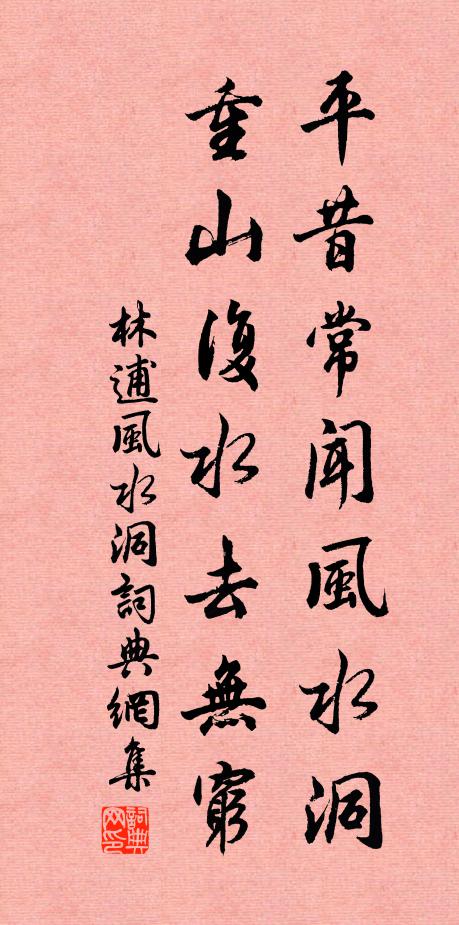 平昔常聞風水洞
重山復水去無窮
林逋風水洞詞典網集
詞典网印